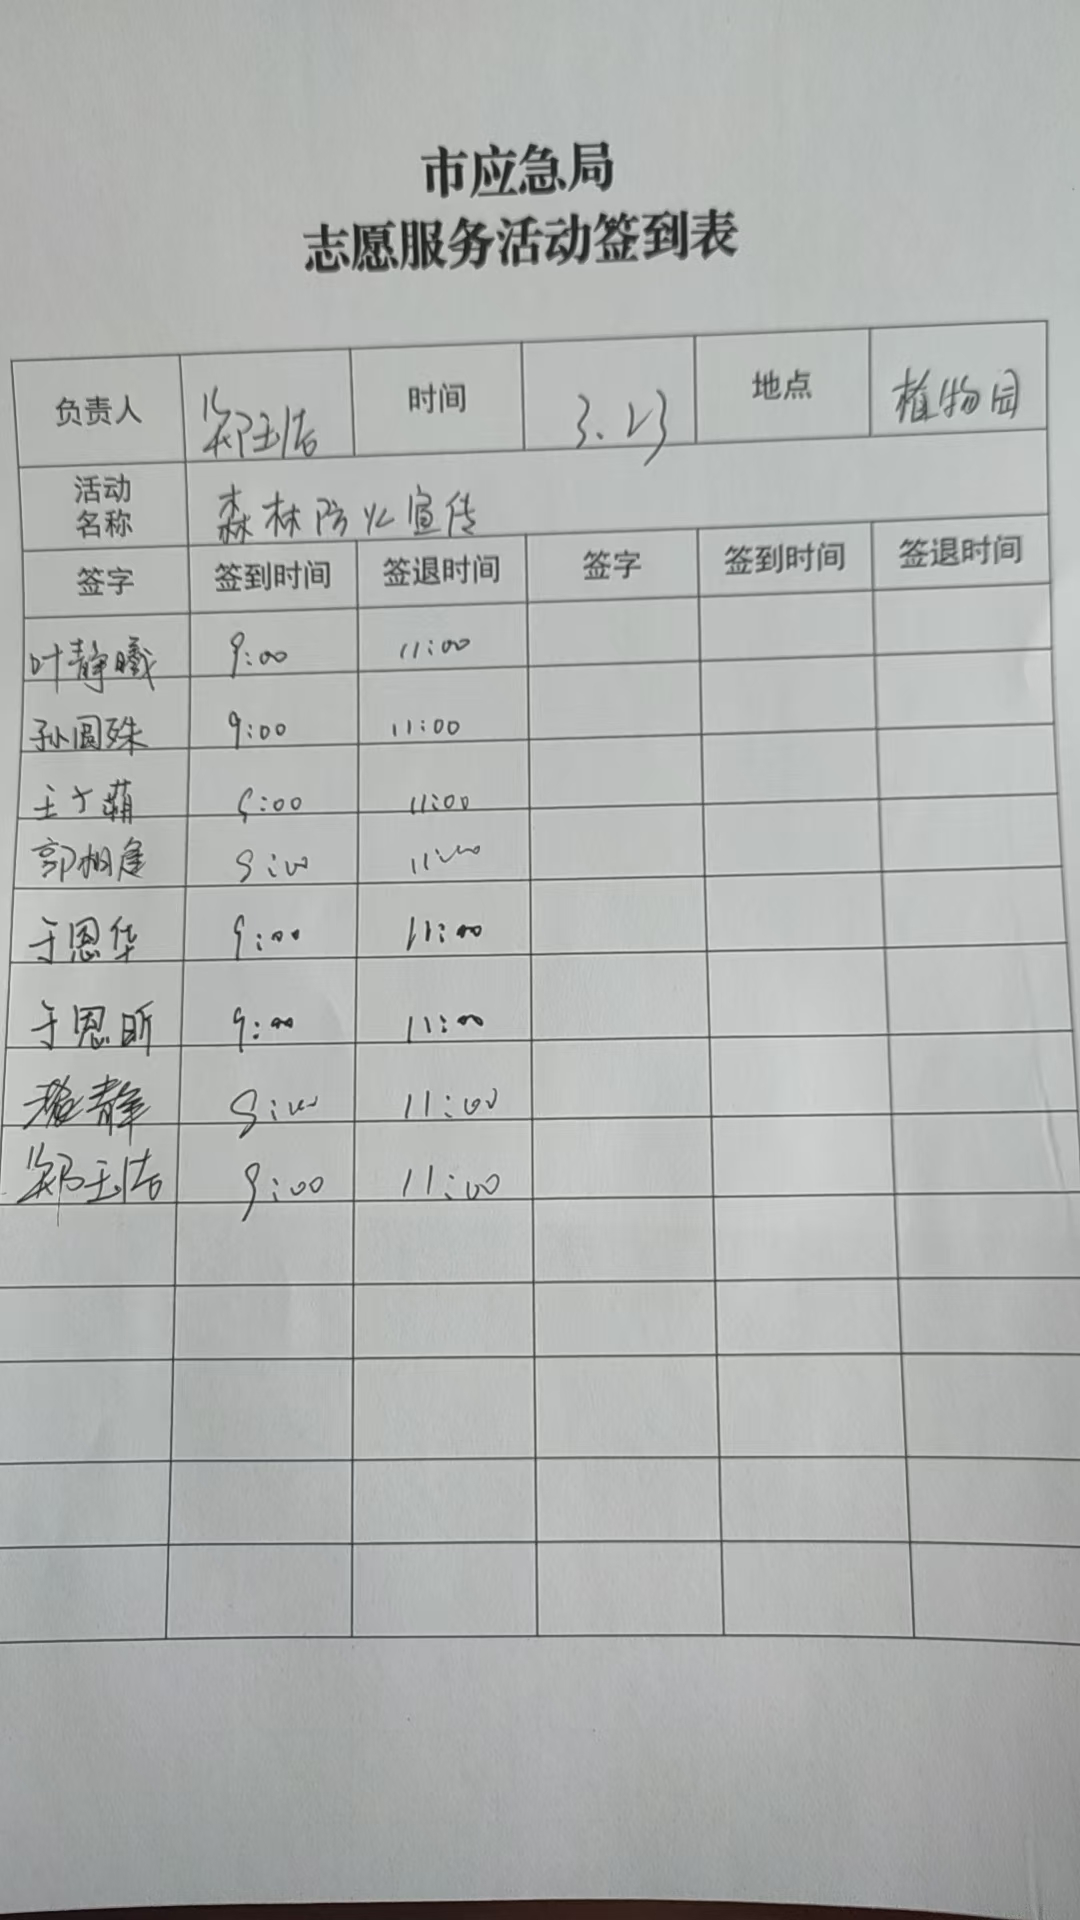 市应急局
志愿服务活动签到表
负责人 郑玉洁 时间 3.23 地点 植物园
活动名称 森林防火宣传
签字 签到时间 签退时间 签字 签到时间 签退时间
叶静曦 9:00 11:00
孙圆姝 9:00 11:00
王 萌 9:00 11:00
郭相 9:00 11:00
于恩华 9:00 11:00
于恩昕 9:00 11:00
静 9:00 11:00
郑玉洁 9:00 11:00